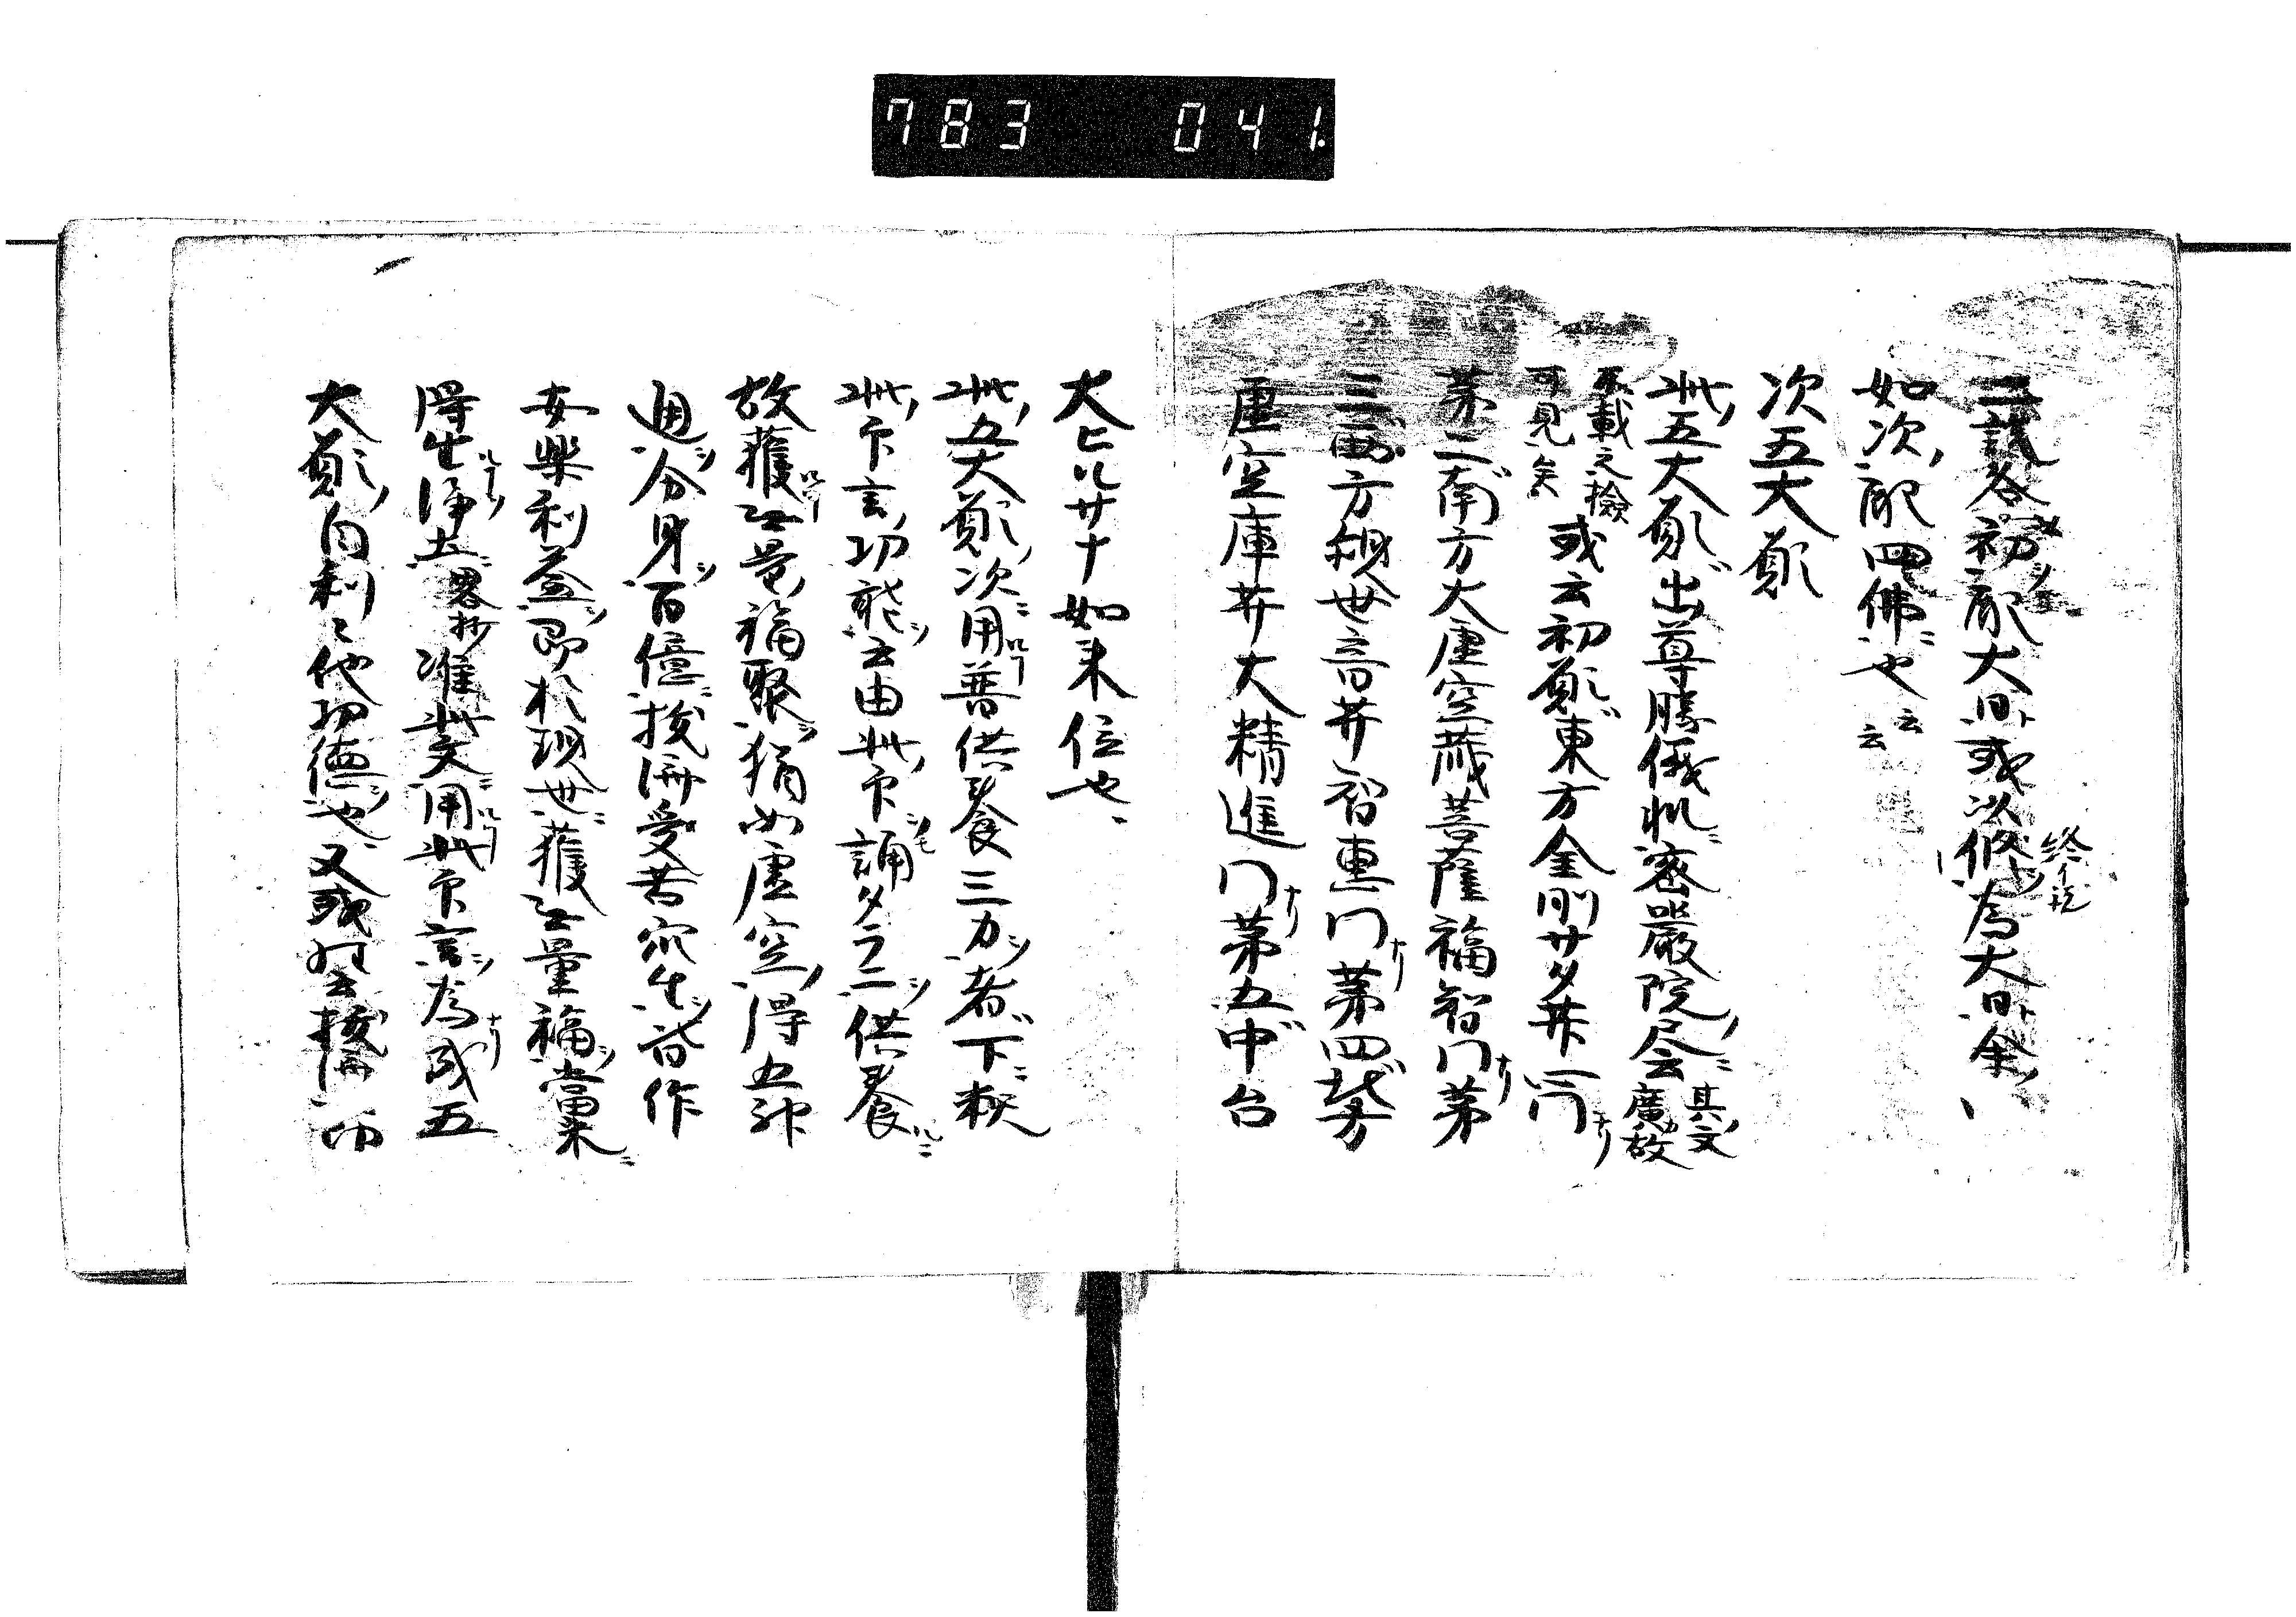 783 041.
二説各初配大日或以後為大日余
如次配四佛也云云
次五大願
此五大願出尊勝儀軌密嚴院尽云其文廣故
不載之撿可見矣或云初願東方金剛サタ𦬇門ナリ
第二南方大虚空蔵菩薩福智門ナリ第
三西方観世音𦬇智恵門ナリ第四北方
虚空庫𦬇大精進門ナリ第五中台
大日如来位也
此五大願次用普供養三力者下
此印言功能云由此印誦供養
故獲無量福聚猶如虚空得五神
通分身百億抜済受苦衆生皆作
安楽利益即於現世獲無量福當来
得生浄土畧抄准此文用此印言為成五
大願自利々他功徳也又或云抜済